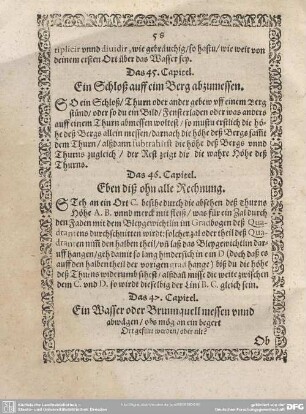 58
tiplicir vnnd diuidir, wie gebräuchig/ so hastu/ wie weit von
deinem ersten Ort über das Wasser sey.
Das 45. Capitel.
Ein Schloß auff eim Berg abzumessen.
SO ein Schloß/ Thurn oder ander gebew vff einem Berg
stünde/ oder so du ein Bild/ Fensterladen oder was anders
auff einem Thurn abmessen woltest/ so mustu erstlich die hö-
he deß Bergs allein messen/ darnach die höhe deß Bergs sampt
dem Thurn/ alsdann subtrahirt die höhe deß Bergs vnnd
Thurns zugleich/ der Rest zeigt dir die wahre Höhe deß
Thurns.
Das 46. Capitel.
Eben diß ohn alle Rechnung.
STeh an ein Ort C. besihe durch die absehen deß thurns
Höhe A. B. vnnd merck mit fleiß/ was für ein zal durch
den Faden mit dem Bleygewichtlin im Gradbogen deß Qua-
dranten durchschnitten wirdt: solcher zal oder theil deß Qua-
dranten nim den halben theil/ vñ laß das Bleygewichtlin dar-
auff hangen/ geh damit so lang hindersich in ein D (doch daß es
auff den halben theil der vorigen grad hange) biß du die höhe
deß Thurns widerumb sihest/ alsdann misse die weite zwischen
dem C. vnd D. so wirdt dieselbig der Lini B. C. gleich sein.
Das 47. Capitel.
Ein Wasser oder Brunnquell messen vnnd
abwägen/ obs mög an ein begert
Ort geführt werden/ oder nit?
Ob